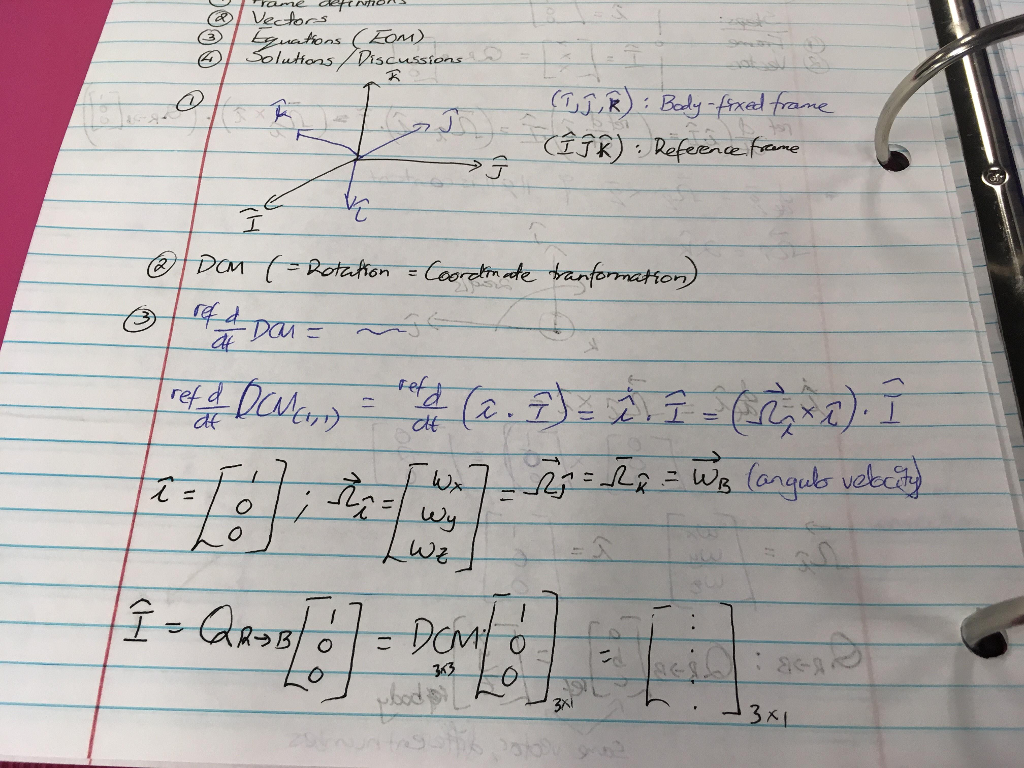 ① Frame definitions
② Vectors
③ Equations (EOM)
④ Solutions/Discussions
①
K̂
k̂
ĵ
Ĵ
Î
î
(î, ĵ, k̂) : Body-fixed frame
(Î Ĵ K̂) : Reference frame
② DCM ( = Rotation = Coordinate tranformation)
③ ref d/dt DCM = ~
ref d/dt DCM(1,1) = ref d/dt (î · Î) = î̇ · Î = (Ω⃗î × î) · Î
î = [1 0 0] ; Ω⃗î = [ωx ωy ωz] = Ω⃗ĵ = Ω⃗k̂ = ω⃗B (angular velocity)
Î = Q R→B [1 0 0] = DCM 3x3 [1 0 0] 3x1 = [⋮] 3x1